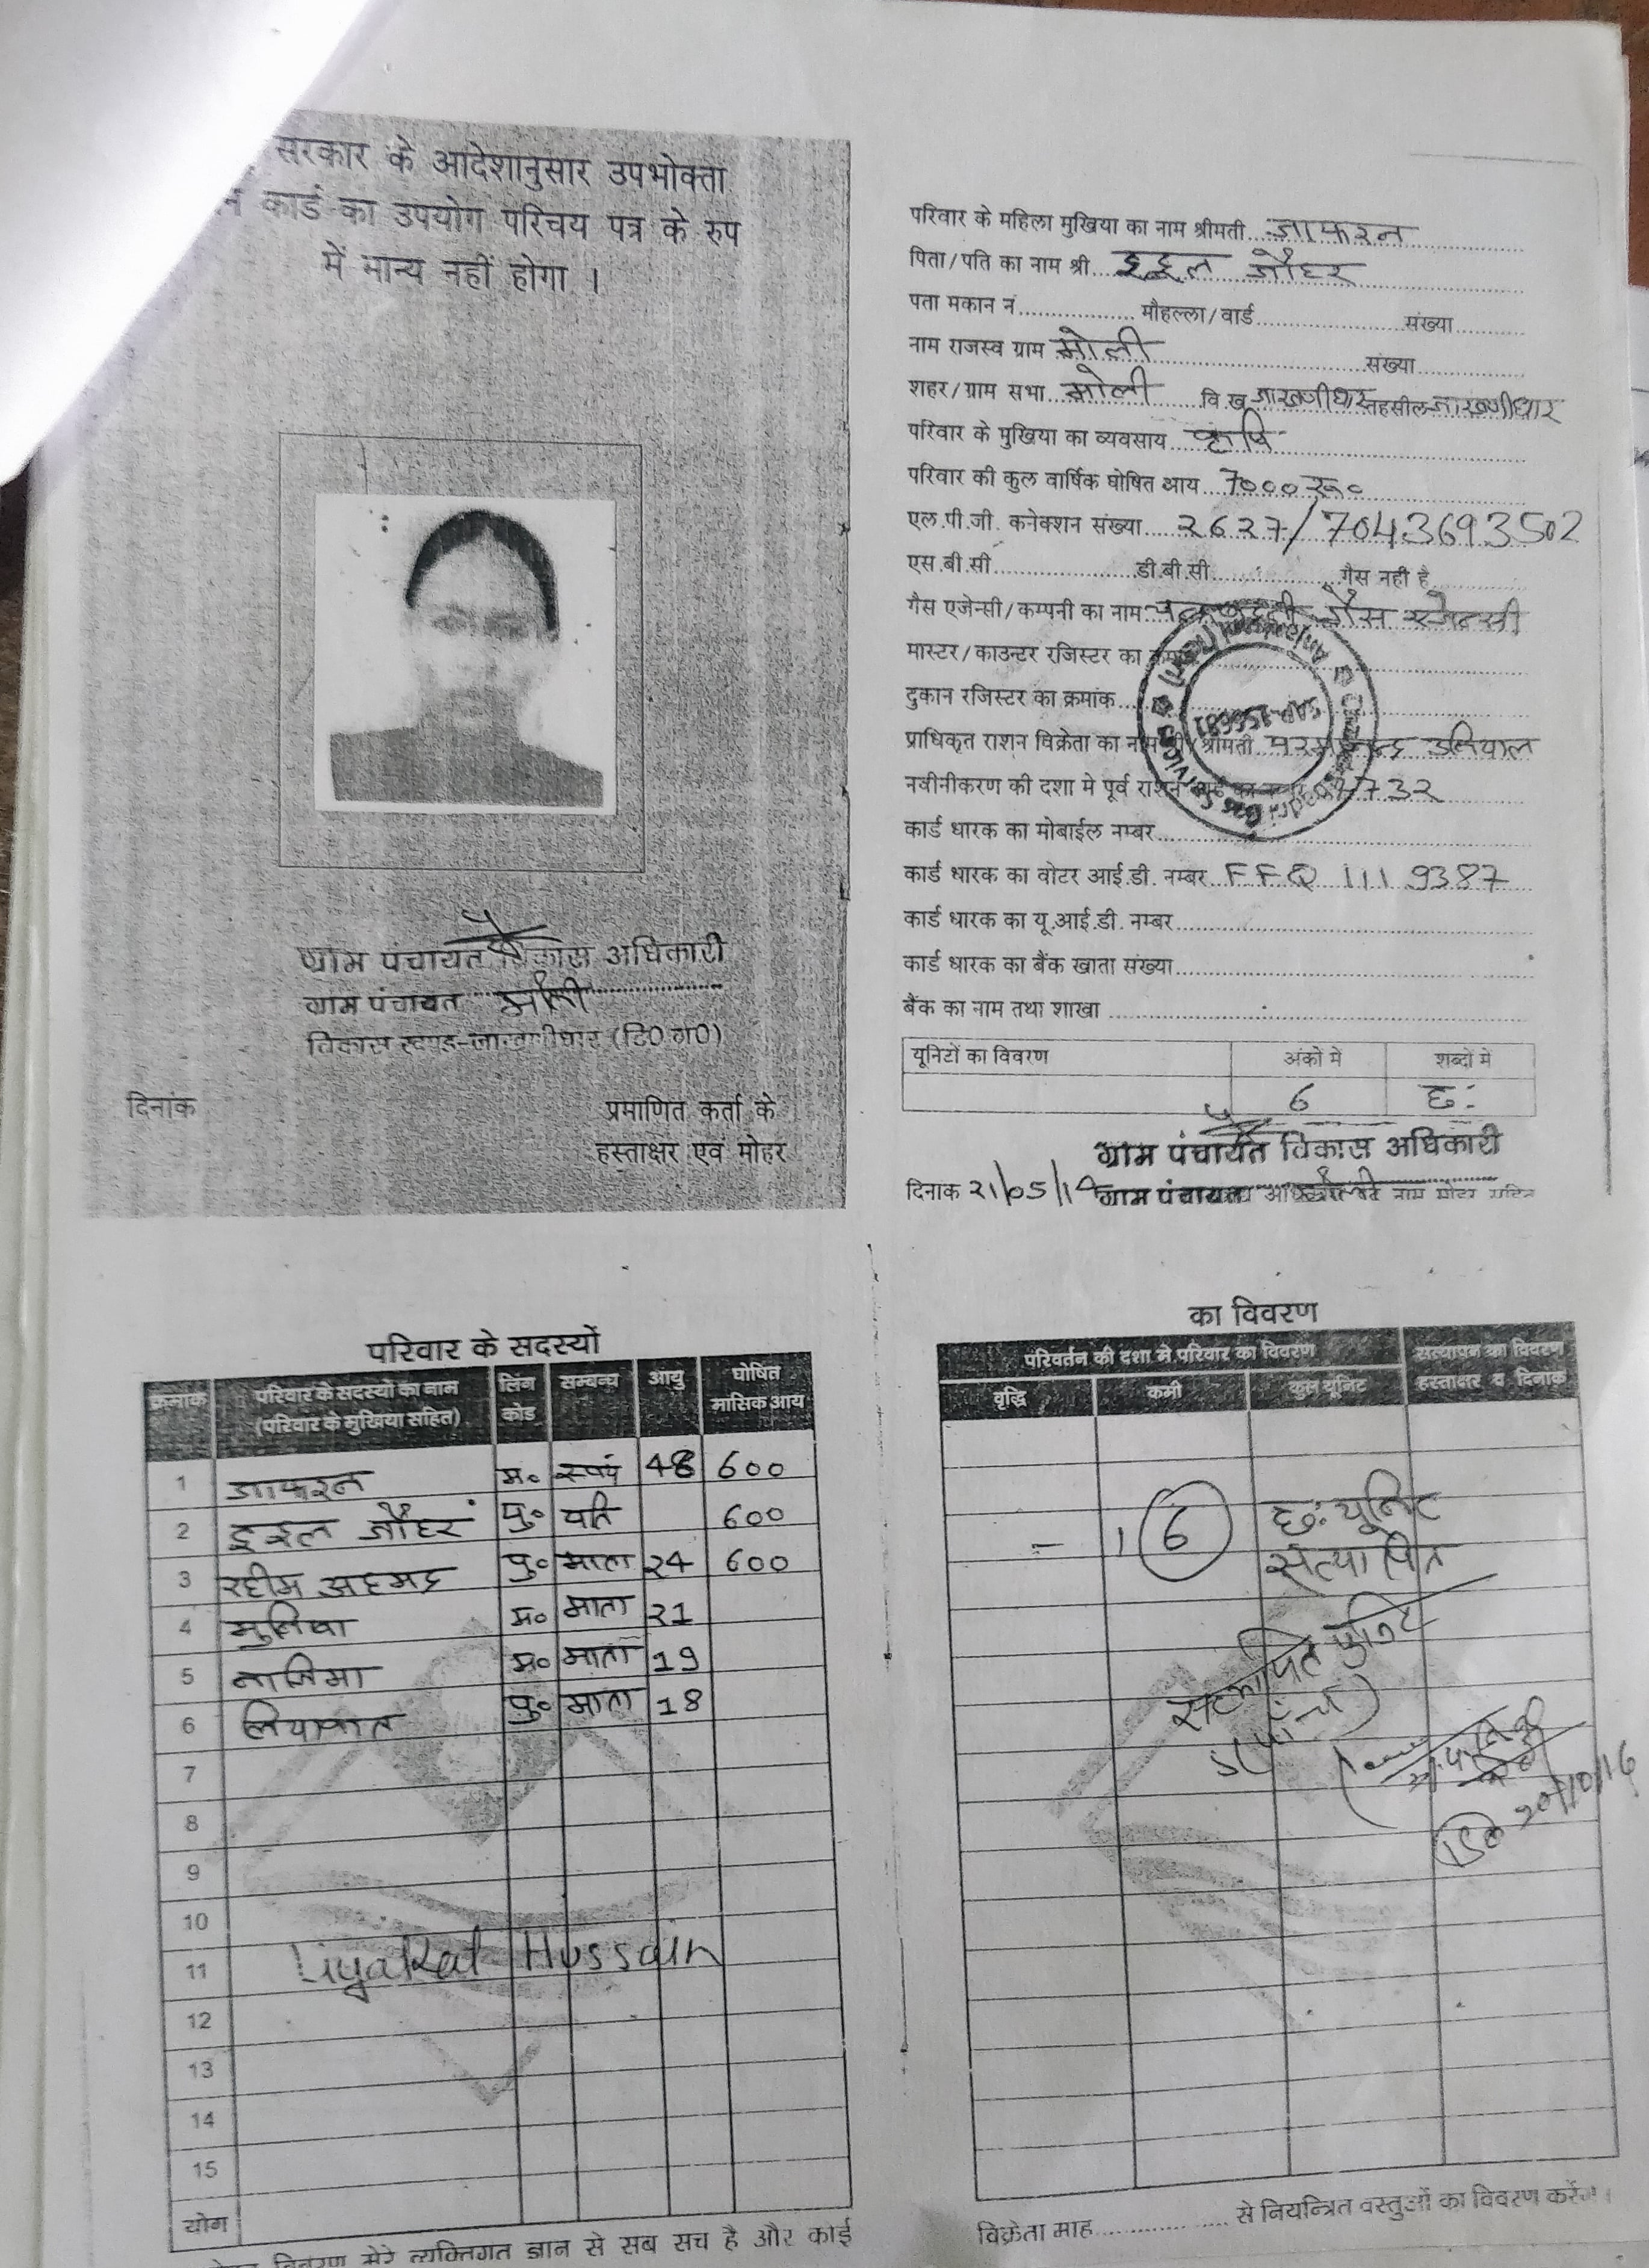 सरकार के आदेशानुसार उपभोक्ता
कार्ड का उपयोग परिचय पत्र के रुप
में मान्य नहीं होगा ।
ग्राम पंचायत विकास अधिकारी
ग्राम पंचायत मोली
विकास खण्ड-जाखणीधार (टि0ग0)
दिनांक
प्रमाणित कर्ता के
हस्ताक्षर एवं मोहर
परिवार के महिला मुखिया का नाम श्रीमती जाफरन
पिता/पति का नाम श्री
पता मकान नं मौहल्ला/वार्ड संख्या
नाम राजस्व ग्राम मोली संख्या
शहर/ग्राम सभा मोली वि.ख. जाखणीधार तहसील जाखणीधार
परिवार के मुखिया का व्यवसाय कृषि
परिवार की कुल वार्षिक घोषित आय 7000 रू०
एल.पी.जी. कनेक्शन संख्या 2627/7043693502
एस.बी.सी डी.बी.सी गैस नहीं है
गैस एजेन्सी/कम्पनी का नाम गैस एजेन्सी
मास्टर/काउन्टर रजिस्टर का
दुकान रजिस्टर का क्रमांक
प्राधिकृत राशन विक्रेता का नाम श्री/श्रीमती उनियाल
नवीनीकरण की दशा मे पूर्व राशन कार्ड का
कार्ड धारक का मोबाईल नम्बर
कार्ड धारक का वोटर आई.डी. नम्बर FFQ 1119387
कार्ड धारक का यू.आई.डी. नम्बर
कार्ड धारक का बैंक खाता संख्या
बैंक का नाम तथा शाखा
यूनिटों का विवरण अंको मे शब्दों मे
6 छः
ग्राम पंचायत विकास अधिकारी
दिनांक 21/05/14 ग्राम पंचायत
परिवार के सदस्यों
क्रमांक परिवार के सदस्यों का नाम (परिवार के मुखिया सहित) लिंग कोड सम्बन्ध आयु घोषित मासिक आय
1 जाफरन म० स्वयं 48 600
2 पु० पति 600
3 रहीम अहमद पु० माता 24 600
4 म० माता 21
5 म० माता 19
6 लियाकत पु० माता 18
7
8
9
10
11 Liyakat Hussain
12
13
14
15
योग
विवरण मेरे व्यक्तिगत ज्ञान से सब सच है और कोई
का विवरण
परिवर्तन की दशा मे परिवार का विवरण सत्यापन का विवरण
वृद्धि कमी कुल यूनिट हस्ताक्षर व दिनांक
- 1 6 छः यूनिट
सत्यापित
सत्यापित यूनिट
5 (पाँच)
विक्रेता माह से नियन्त्रित वस्तुओं का विवरण करेंगे।